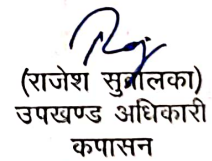 (राजेश सुवालका)
उपखण्ड अधिकारी
कपासन